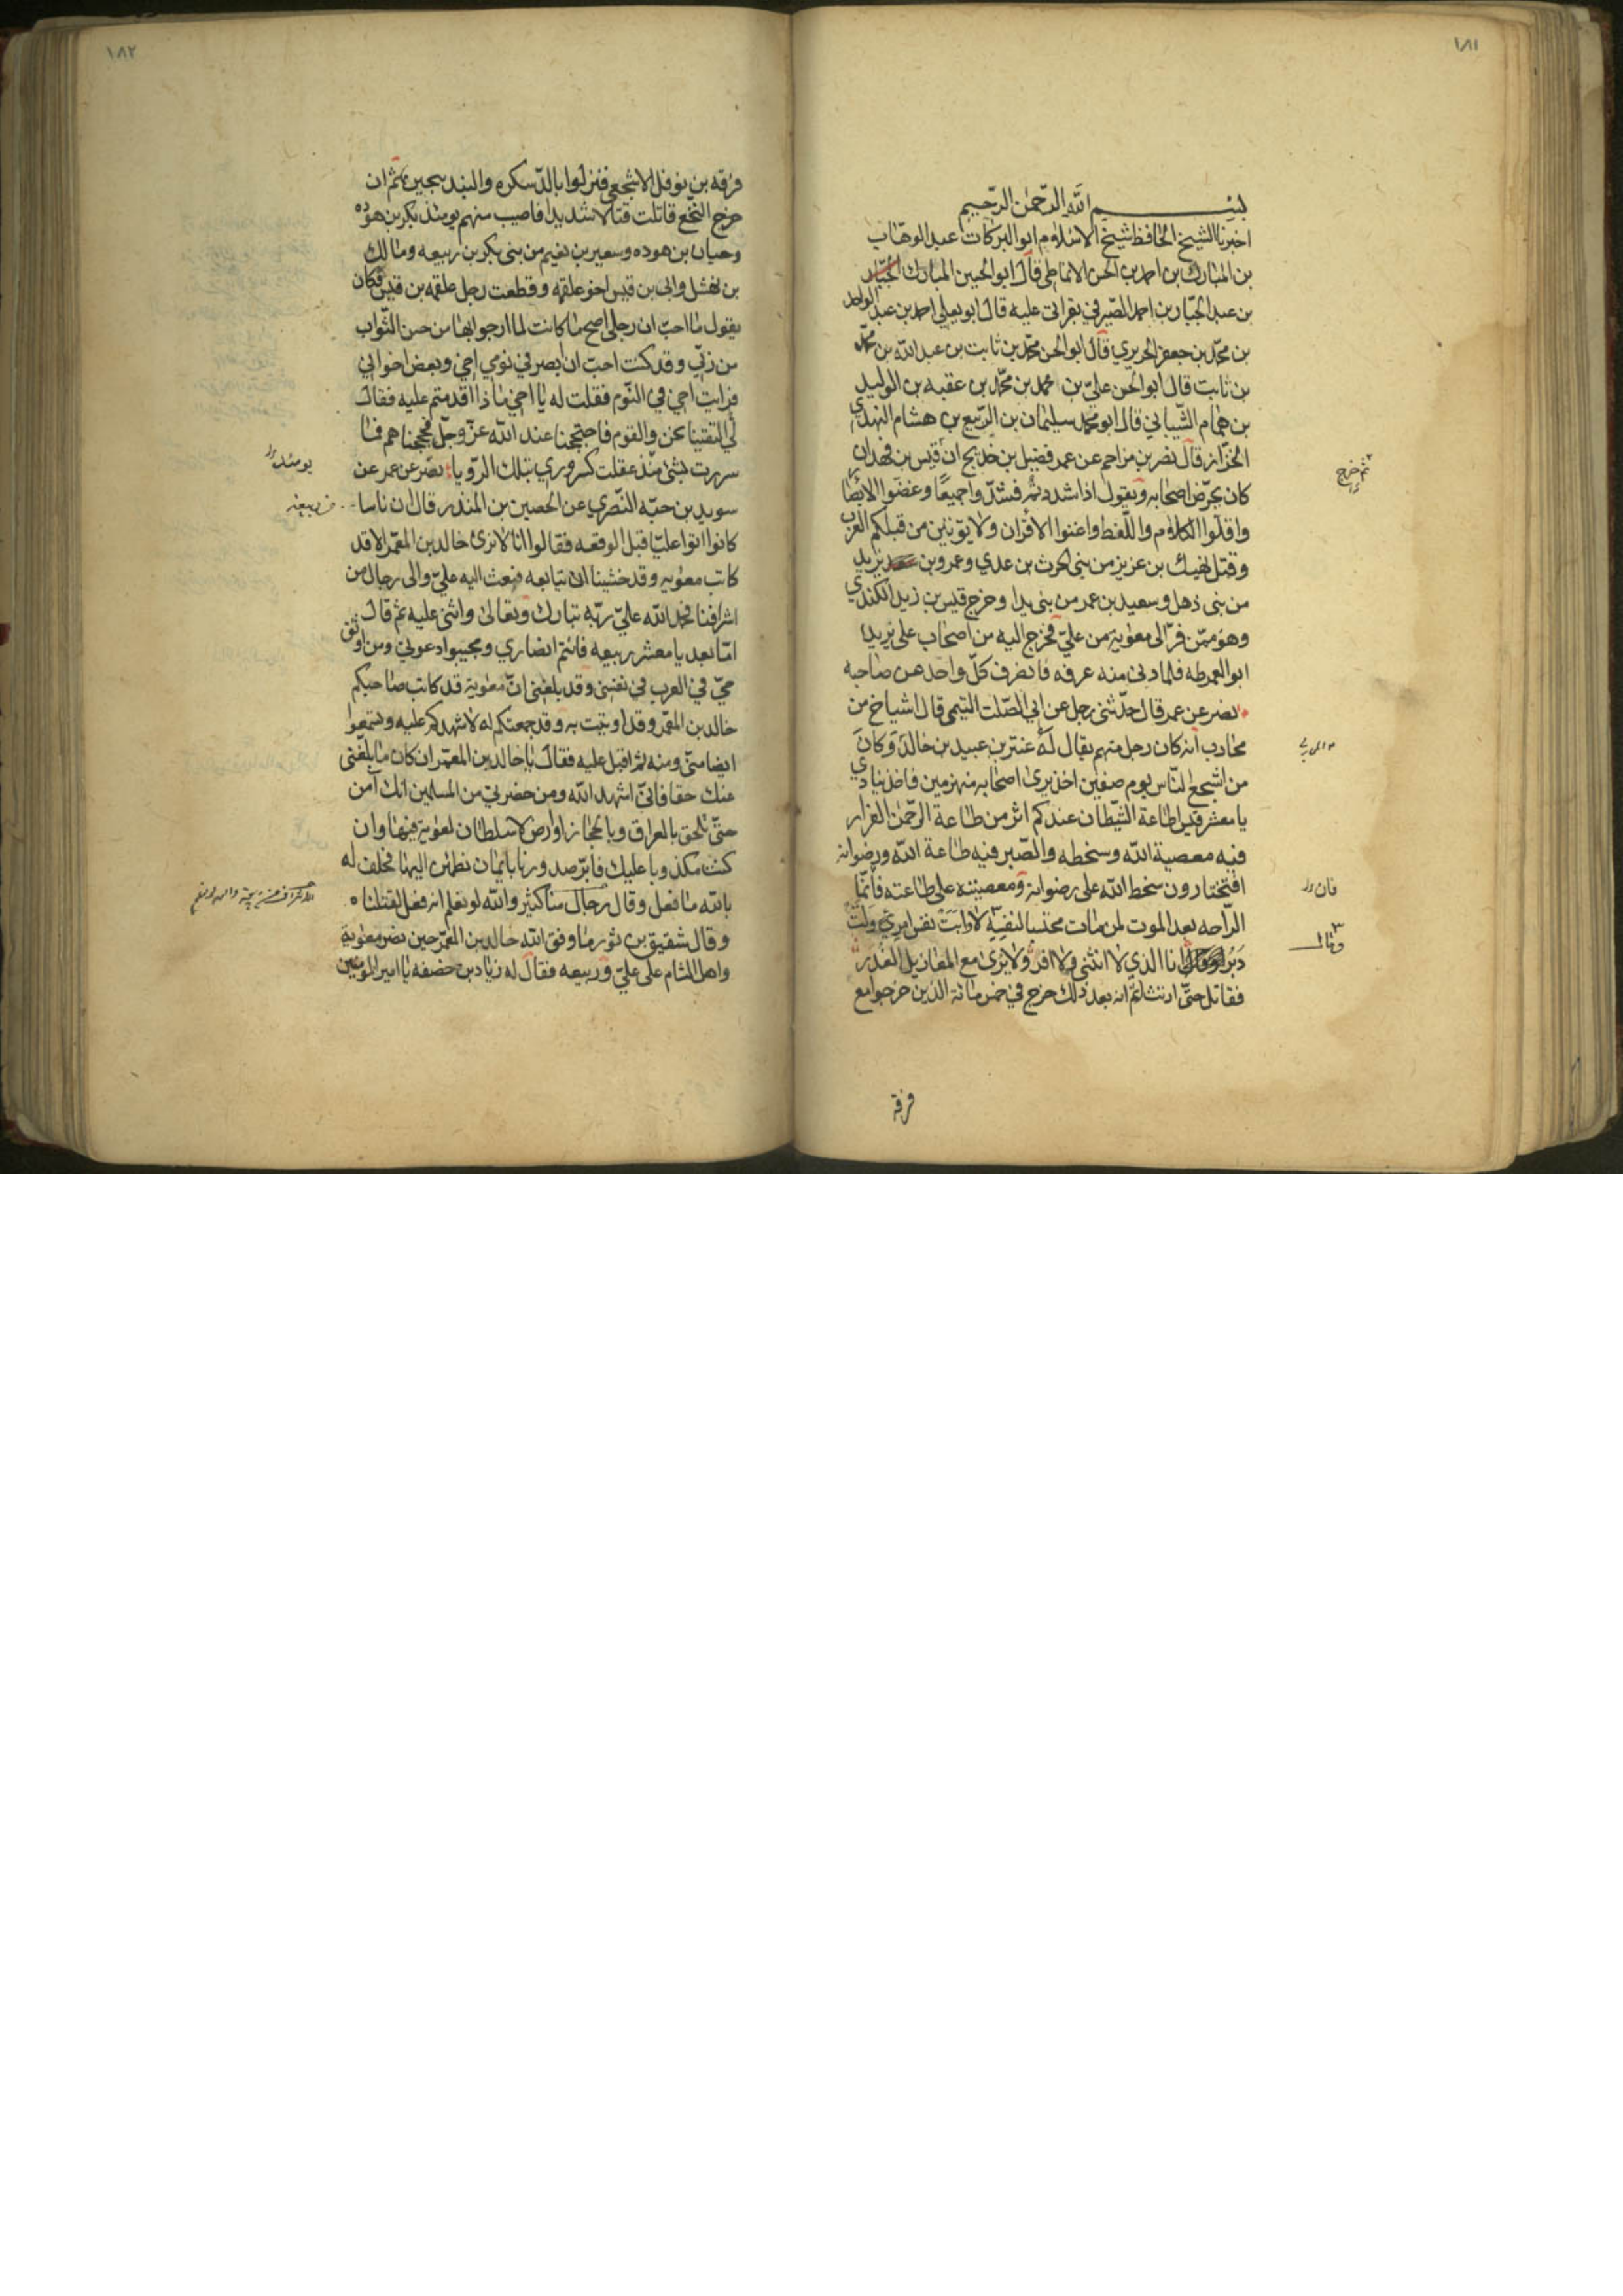 ١٨١
بسم الله الرحمن الرحيم
اخبرنا الشيخ الحافظ شيخ الاسلام ابو البركات عبد الوهاب
بن المبارك بن احمد بن الحسن الانماطي قال ابو الحسين المبارك
بن عبد الجبار بن احمد الصيرفي بقراتى عليه قال ابو يعلي احمد بن عبد الواحد
بن محمد بن جعفر الحريري قال ابو الحسن محمد بن ثابت بن عبد الله بن محمد
بن ثابت قال ابو الحسن علي بن محمد بن محمد بن عقبه بن الوليد
بن همام الشيباني قال ابو محمد سليمان بن الربيع بن هشام النهدي
الخزاز قال نصر بن مزاحم عن عمر فضيل بن خديج ان قيس بن فهدان
كان يحرض اصحابه ويقول اذا شددتم فشدوا جميعا وغضوا الابصار
واقلوا الكلام واللغط واغنوا الاقران ولا يوتين من قبلكم العرب
وقتل نهيك بن عزيز من بنى الحرث بن عدي وعمرو بن يزيد
من بنى ذهل وسعيد بن عمر من بنى بدا وخرج قيس بن زيد الكندي
وهو ممن فر الى معوية من علي فخرج اليه من اصحاب علي يزيد
ابو العمرطه فلما دنى منه عرفه فانصرف كل واحد عن صاحبه
نصر عن عمر قال حدثنى رجل عن ابي الصلت التيمى قال اشياخ من
محارب انه كان رجل منهم يقال له عنتر بن عبيد بن خالد وكان
من اشجع الناس يوم صفين اخذ يرى اصحابه منهزمين فاخذ ينادي
يا معشر قيس اطاعة الشيطان عندكم اثر من طاعة الرحمن الفرار
فيه معصية الله وسخطه والصبر فيه طاعة الله ورضوانه
افتختارون سخط الله على رضوانه ومعصيته على طاعته فانما
الراحه بعد الموت لمن مات محتسبا لنفسه لا وابت نفس امري ولت
دبر انا الذي لا انثني ولا افر ولا يرى مع المعازيل الغدر
فقاتل حتى ارتث ثم انه بعد ذلك خرج في خمس مائة الذين خرجوا مع
ثم خرج
فان
وقال
فرقة
١٨٢
فرقه بن نوفل الاشجعي فنزلوا بالدسكره والبندنيجين ثم ان
خرج النخع قاتلت قتالا شديدا فاصيب منهم يومئذ بكر بن هوذه
وحيان بن هوده وسعير بن نعيم من بنى بكر بن ربيعه ومالك
بن نهشل وابى بن قيس اخو علقمه وقطعت رجل علقمه بن قيس فكان
يقول ما احب ان رجلي اصح ما كانت لما ارجو بها من حسن الثواب
من ربي وقد كنت احب ان ابصر في نومي اخي وبعض اخواني
فرايت اخي في النوم فقلت له يا اخي ماذا اقدمتم عليه فقال
لي التقينا نحن والقوم فاحتججنا عند الله عز وجل فحججناهم فما
سررت بشئ منذ عقلت كسروري بتلك الرويا نصر عن عمر عن
سويد بن حبه النصري عن الحصين بن المنذر قال ان ناسا
كانوا اتوا عليا قبل الوقعه فقالوا انا لا نرى خالد بن المعمر الا قد
كاتب معويه وقد خشينا ان يتابعه فبعث اليه علي والى رجال من
اشرافنا فحمد الله علي ربه تبارك وتعالى واثنى عليه ثم قال
اما بعد يا معشر ربيعه فانتم انصاري ومجيبوا دعوتي ومن اوثق
حي في العرب في نفسى وقد بلغنى ان معوية قد كاتب صاحبكم
خالد بن المعمر وقد اوتيت به وقد جمعتكم له لاشهدكم عليه وتسمعوا
ايضا منى ومنه ثم اقبل عليه فقال يا خالد بن المعمر ان كان ما بلغنى
عنك حقا فانى اشهد الله ومن حضرني من المسلمين انك آمن
حتى تلحق بالعراق وبالحجاز او ارض لا سلطان لمعوية فيها وان
كنت مكذوبا عليك فابر صدورنا بايمان نطمئن اليها فحلف له
بالله ما فعل وقال رجال منا كثير والله لو نعلم انه فعل لقتلناه
وقال شقيق بن ثور ما وفق الله خالد بن المعمر حين نصر معوية
واهل الشام على علي وربيعه فقال له زياد بن خصفه يا امير المومنين
يومئذ